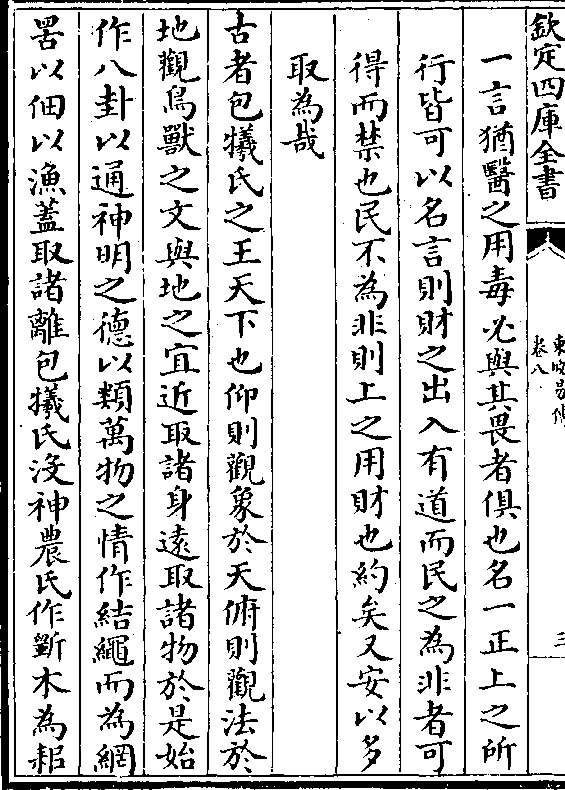 欽定四庫全書
東坡易傳
卷八
三
一言猶醫之用毒必與其畏者俱也名一正上之所
行皆可以名言則財之出入有道而民之為非者可
得而禁也民不為非則上之用財也約矣又安以多
取為哉
古者包犧氏之王天下也仰則觀象於天俯則觀法於
地觀鳥獸之文與地之宜近取諸身遠取諸物於是始
作八卦以通神明之德以類萬物之情作結繩而為網
罟以佃以漁蓋取諸離包犧氏沒神農氏作斵木為耜